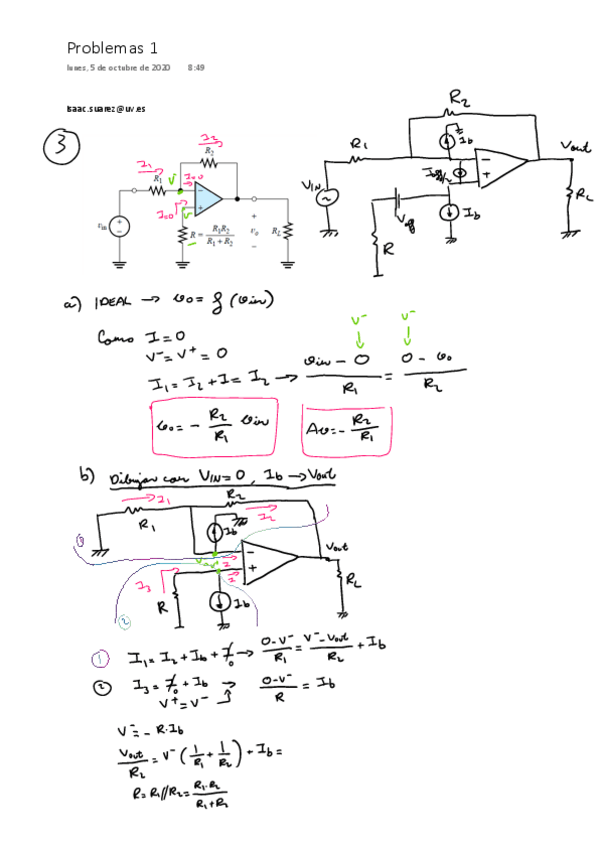 Problemas 1
lunes, 5 de octubre de 2020 8:49
isaac.suarez@uv.es
3
I₂
R₂
I₁
R₁
V⁻
I=0
I=0
V⁺
vin
R = R₁R₂ / (R₁ + R₂)
+
vo
−
RL
R₂
Ib
R₁
Vout
VIN
Ib
RL
Voff
R
a) IDEAL → vo = f (vin)
Como I = 0
V⁻ = V⁺ = 0
V⁻ V⁻
I₁ = I₂ + I = I₂ → (vin − 0) / R₁ = (0 − vo) / R₂
vo = − R₂/R₁ vin
Av = − R₂/R₁
b) Dibujar con VIN = 0, Ib → Vout
I₁
R₂
R₁
Ib
I₂
1
Vout
I
I
I₃
R
Ib
RL
2
1 I₁ = I₂ + Ib + I⁰ → (0 − V⁻)/R₁ = (V⁻ − Vout)/R₂ + Ib
2 I₃ = I⁰ + Ib → (0 − V⁻)/R = Ib
V⁺ = V⁻
V⁻ = − R·Ib
Vout/R₂ = V⁻ (1/R₁ + 1/R₂) + Ib =
R = R₁//R₂ = R₁·R₂ / (R₁ + R₂)